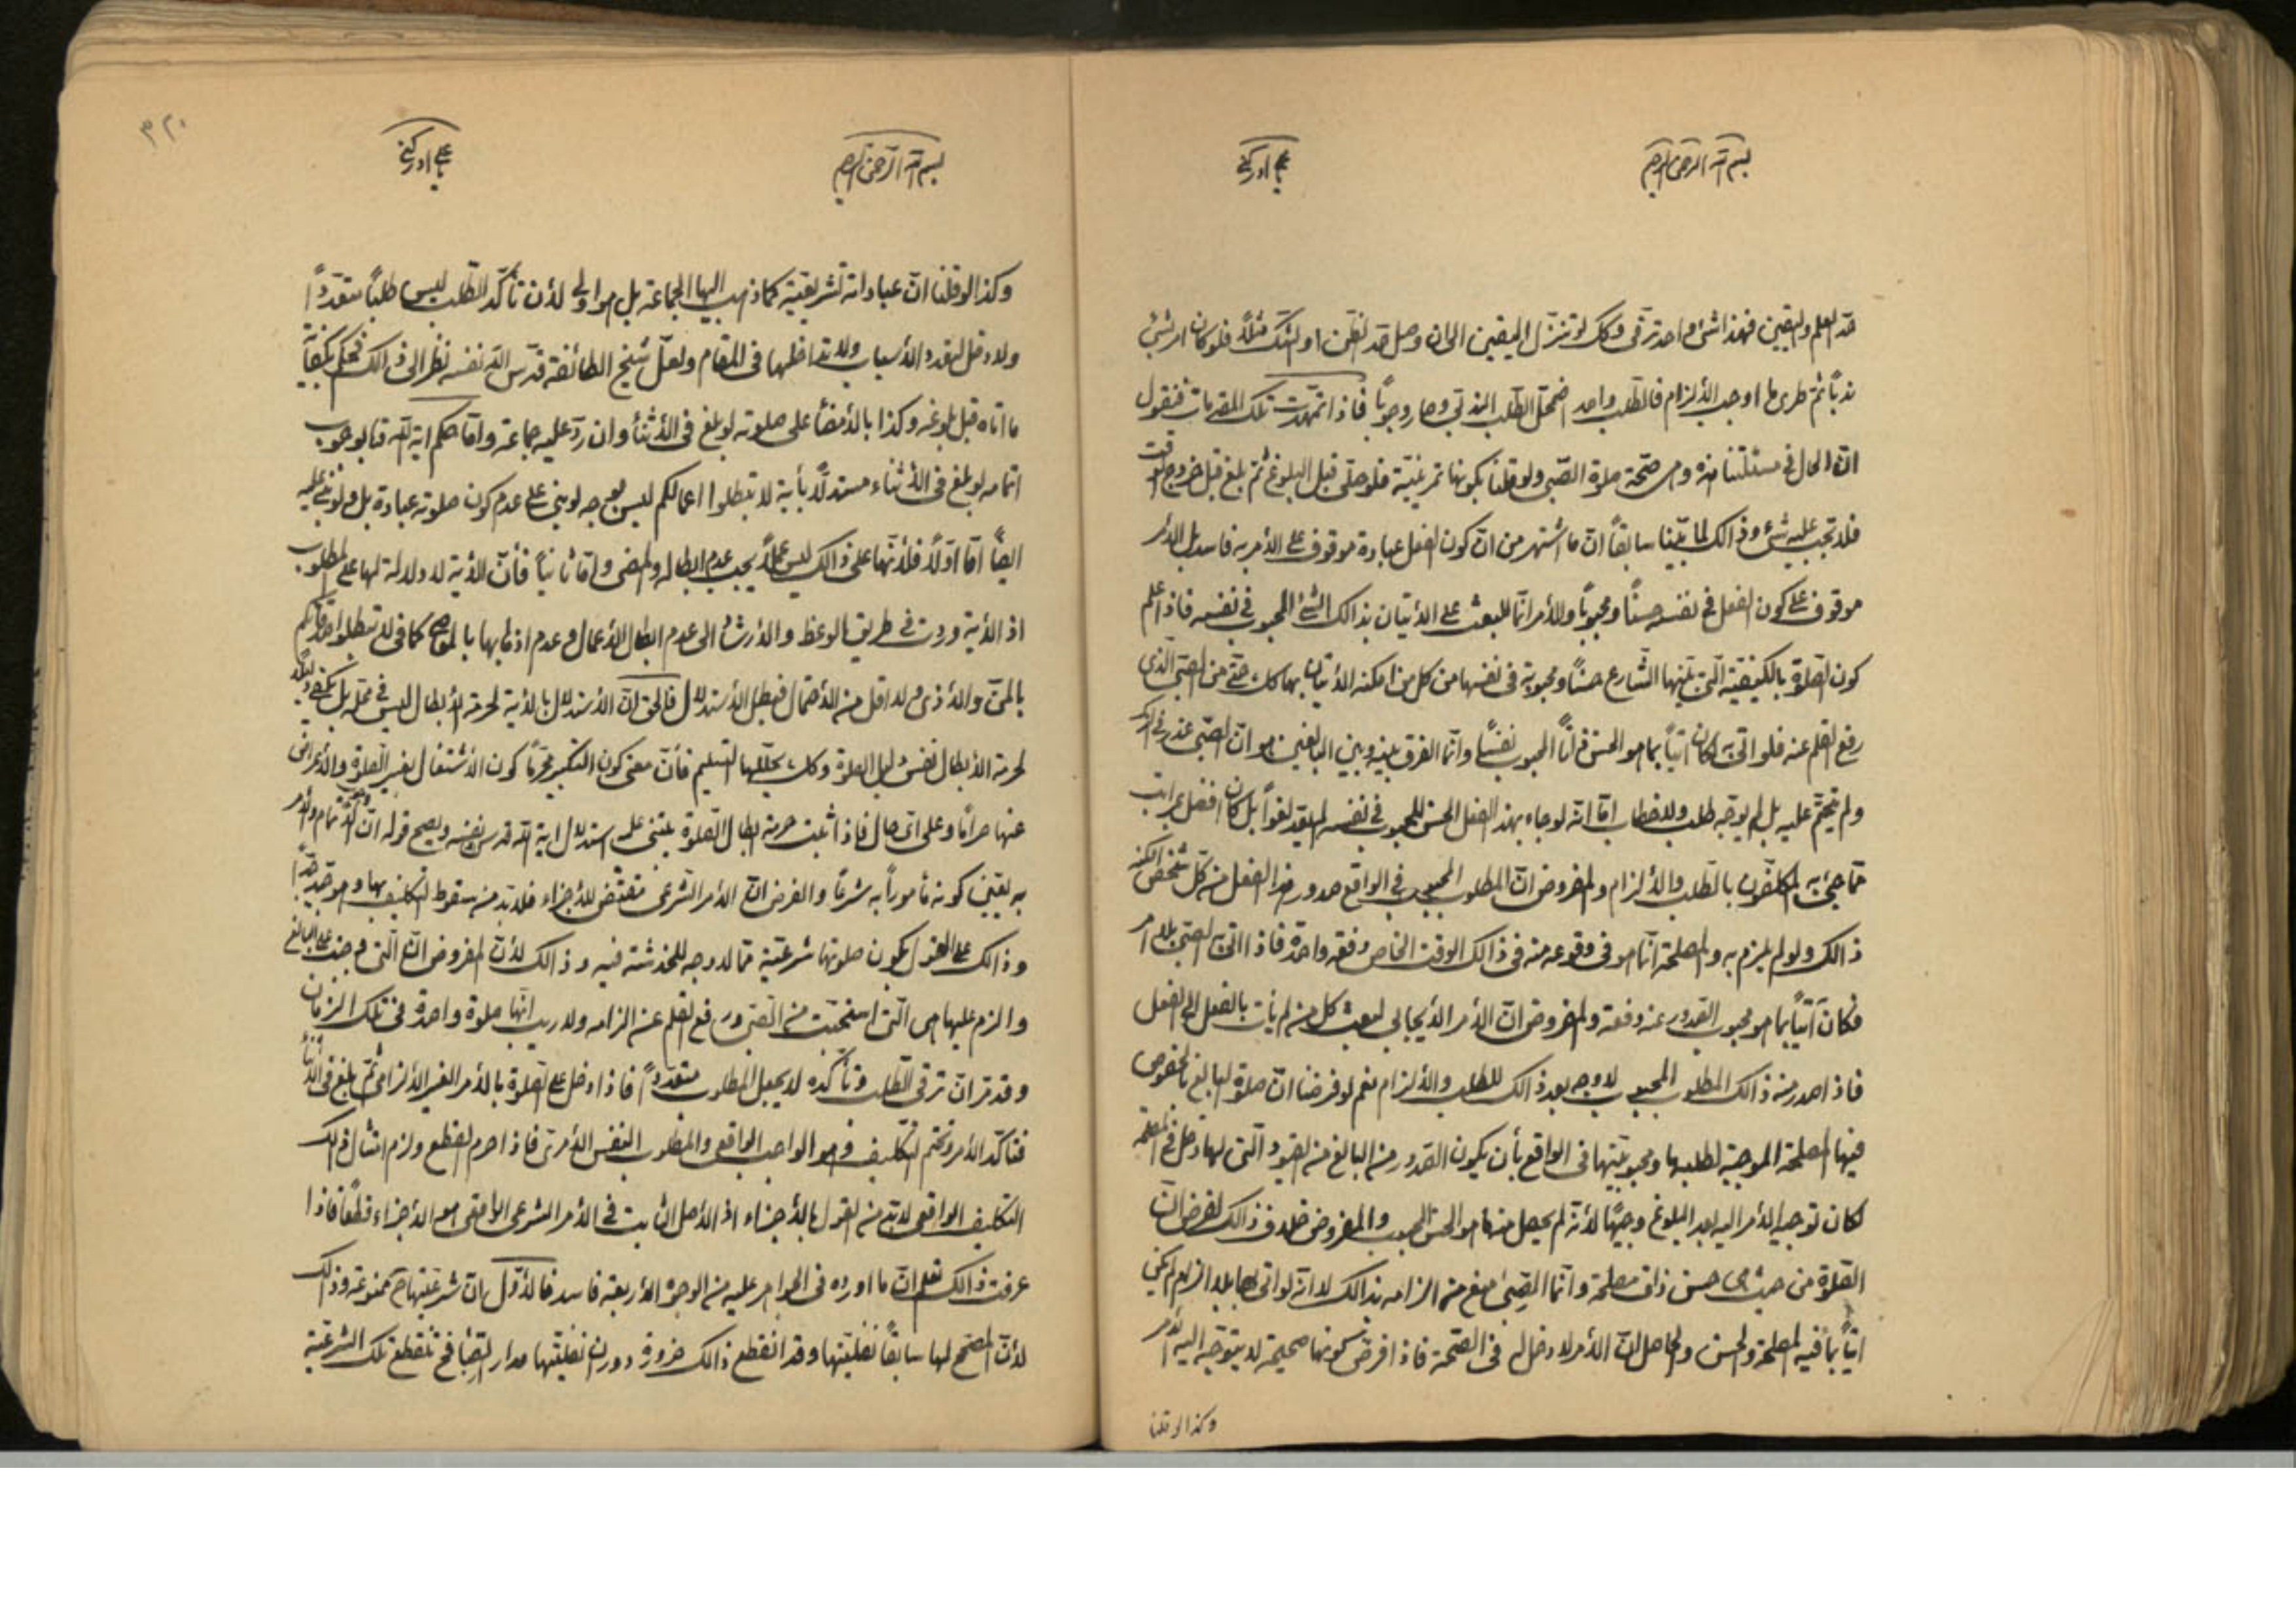 بسم الله الرحمن الرحيم
يا علي ادركني
حد العلم واليقين فهذا شئ واحد ترقى وكك لو تنزل اليقين الى ان وصل حد الظن او الشك مثلاً فلو كان امر بشئ
ندباً ثم طرى ما اوجب الألزام فالطلب واحد اضمحل الطلب الندبى وصار وجوباً فاذا تمهدت تلك المقدمات فنقول
ان الحال في مسئلتنا هذه وهي صحة صلوة الصبى ولو قلنا بكونها تمرينية فلو صلى قبل البلوغ ثم بلغ قبل خروج الوقت
فلا تجب عليه شئ وذالك لما بيّنا سابقاً ان ما اشتهر من ان كون الفعل عبادة موقوف على الأمر به فاسد بل الأمر
موقوف على كون الفعل في نفسه حسناً ومحبوباً والأمر انما للبعث على الأتيان بذالك الشئ المحبوب في نفسه فاذا علم
كون الصلوة بالكيفية التى بينها الشارع حسناً ومحبوبة فى نفسها من كل من امكنه الأتيان بها كك حتى من الصبى الذى
رفع القلم عنه فلو اتى به كان اتياً بما هو الحسن ذاتاً المحبوب نفساً وانما الفرق بينه وبين البالغين هو ان الصبى عذر في الترك
ولم يتحتم عليه بل لم يوجه طلب ولا خطاب اما انه لو جاء بهذا الفعل الحسن المحبوب في نفسه لم يعد لغواً بل كان افضل مراتب
مما جئ به المكلفون بالطلب والألزام والمفروض ان المطلوب المحبوب في الواقع صدور هذا الفعل من كل شخص امكنه
ذالك ولو لم يلزم به والمصلحة انما هو فى وقوعه منه فى ذالك الوقت الخاص دفعة واحدة فاذا اتى به الصبى بلا امر
فكان آتياً بما هو محبوب الصدور عنه دفعة والمفروض ان الأمر الأيجابى لبعث كل من لم يأت بالفعل الى الفعل
فاذا صدر منه ذالك المطلوب المحبوب لا وجه بعد ذالك للطلب والألزام نعم لو فرضنا ان صلوة البالغ بالخصوص
فيها المصلحة الموجبة لطلبها ومحبوبيتها فى الواقع بأن يكون الصدور من البالغ من القيود التى لها دخل في المصلحة
لكان توجيه الأمر اليه بعد البلوغ وجيهاً لأنه لم يحصل منه ما هو الحسن المحبوب والمفروض خلاف ذالك لفرض ان
الصلوة من حيث هى حسن ذات مصلحة وانما الصبى منع من الزامه بذالك لا انه لو اتى بها بلا الزام لم يكن
اتياً بما فيه المصلحة والحسن والحاصل ان الأمر لا دخل له فى الصحة فاذا فرض كونها صحيحة لا يتوجه اليه الأمر
وكذا لو قلنا
٣٢٠
بسم الله الرحمن الرحيم
يا علي ادركني
وكذا لو قلنا ان عباداته تشريعية كما ذهب اليها الجماعة بل هو اولى لأن تأكد الطلب ليس طلباً متعدداً
ولا دخل لتعدد الأسباب ولا تداخلها فى المقام ولعل شيخ الطائفة قدس الله نفسه نظر الى ذالك فحكم بكفاية
ما اتاه قبل بلوغه وكذا بالأمضأ على صلوته لو بلغ فى الأثنأ وان رد عليه جماعة واما حكم اية الله قنا بوجوب
اتمامه لو بلغ فى الأثناء مستدلاً بأية لا تبطلوا اعمالكم ليس بوجه لو بنى على عدم كون صلوته عبادة بل ولو بنى عليه
ايضاً اما اولاً فلأنها على ذالك ليس عملاً يجب عدم ابطاله والمضى واما ثانياً فأن الأية لا دلالة لها على المطلوب
اذ الأية وردت في طريق الوعظ والأرشاد الى عدم ابطال الأعمال وعدم اذهابها بالمعاصى كما فى لا تبطلوا صدقاتكم
بالمن والأذى ولا اقل من الأحتمال فبطل الأستدلال فالحق ان الأستدلال بالأية لحرمة الأبطال ليس في محله بل يكفى دليلاً
لحرمة الأبطال نفس دليل الصلوة وكك تحليلها التسليم فأن معنى كون التكبير محرماً كون الأشتغال بغير الصلوة والأعراض
عنها حراماً وعلى اى حال فاذا ثبت حرمة ابطال الصلوة يبتنى على استدلال اية الله قدس نفسه ويصح قوله ان وجوب الأتمام والأمر
به يقتضى كونه مأموراً به شرعاً والفرض ان الأمر الشرعى مقتض للأجزاء فلا بد من سقوط التكليف بها وهو جيد جداً
وذالك على القول بكون صلوتها شرعية مما لا وجه للخدشة فيه وذالك لأن المفروض ان التى وجبت على البالغ
والزم عليها هى التى استحبت من الصبى ورفع القلم عن الزامه ولا ريب انها صلوة واحدة فى تلك الزمان
وقد مر ان ترقى الطلب وتأكده لا يجعل المطلوب متعدداً فاذا دخل على الصلوة بالأمر الغير الألزامى ثم بلغ فى الأثنأ
فتأكد الأمر وتحتم التكليف وهو الواجب الواقعى والمطلوب النفس الأمرى فاذا حرم القطع ولزم امتثال ذالك
التكليف الواقعى لا بد من القول بالأجزاء اذ الأصل الثابت في الأمر الشرعى الواقعى هو الأجزاء قطعاً فاذا
عرفت ذالك تعلم ان ما اورده فى الجواهر عليه من الوجوه الأربعة فاسد فالأول ان شرعيتها ح ممنوعة وذالك
لأن المصحح لها سابقاً نفليتها وقد انقطع ذالك ضرورة دوران نفليتها مدار الصبا فح تنقطع تلك الشرعية